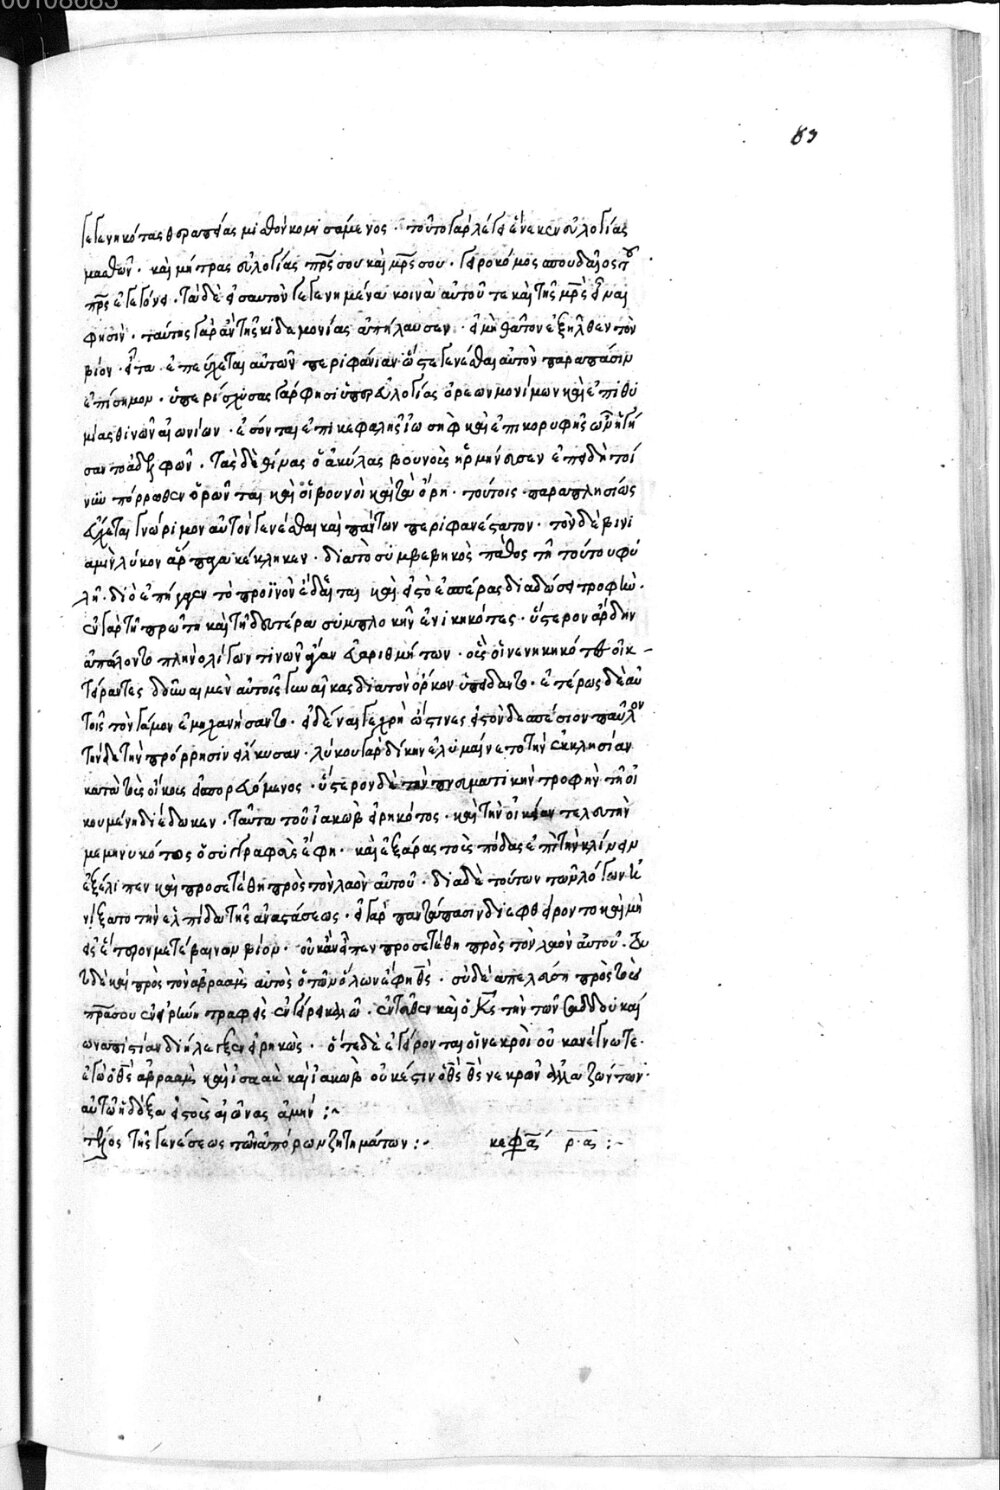 00108683
83
γεγενηκότας θεραπείας μισθὸν κομισάμενος · τοῦτο γὰρ λέγει ἕνεκεν εὐλογίας
μασθῶν · καὶ μήτρας εὐλογίας πρς σου καὶ μρς σου · γηροκόμος σπουδαῖος τοῦ
πρς ἐγεγόνει · τὰ δὲ εἰς αὐτὸν γεγενημένα κοινὰ αὐτοῦ τε καὶ τῆς μρς εἶναι
φησίν · ταύτης γὰρ ἂν τῆς κηδαιμονίας ἀπήλαυσεν · εἰ μὴ θᾶττον ἐξῆλθεν τὸν
βίον · εἶτα ἐπεύχεται αὐτῶν περιφάνιαν ὥστε γενέσθαι αὐτὸν παρὰ πᾶσιν
ἐπίσημον · ὑπερίσχυσας γάρ φησι ὑπὲρ εὐλογίας ὀρέων μονίμων καὶ ἐπιθυ
μίας θινῶν αἰωνίων · ἔσονται ἐπὶ κεφαλῆς ἰωσὴφ καὶ ἐπὶ κορυφῆς ὧν ἡγή
σατο ἀδελφῶν · τὰς δὲ θίνας ὁ ἀκύλας βουνοὺς ἡρμήνευσεν ἐπειδὴ τοί
νυν πόρρωθεν ὁρῶνται καὶ οἱ βουνοὶ καὶ τὰ ὄρη · τούτοις παραπλησίως
εὔχεται γνώριμον αὐτὸν γενέσθαι καὶ πάντων περιφανέστατον · τὸν δὲ βινι
αμὶν λύκον ἅρπαγα κέκληκεν · διὰ τὸ συμβεβηκὸς πάθος τῇ τούτου φυ
λῇ · διὸ ἐπήγαγεν τὸ προϊνὸν ἔδεται καὶ εἰς τὸ ἑσπέρας διαδώσει τροφήν ·
ἐν γὰρ τῇ πρώτῃ καὶ τῇ δευτέρα συμπλοκὴν ἐνικηκότες · ὕστερον ἄρδην
ἀπώλοντο πλὴν ὀλίγων τινῶν λίαν εὐαριθμήτων · οὓς οἱ νενηκηκότες οἰκ
τείραντες δοῦναι μὲν αὐτοῖς γυναῖκας διὰ τὸν ὅρκον ὑπείδοντο · ἑτέρως δὲ αὐ
τοῖς τὸν γάμον ἐμηχανήσαντο · εἰδέναι γε χρὴ ὥς τινες εἰς τὸν θεσπέσιον παῦλον
τήνδε τὴν πρόρρησιν εἵλκυσαν · λύκου γὰρ δίκην ἐλυμαίνετο τὴν ἐκκλησίαν
κατὰ τοὺς οἴκους εἰσπορευόμενος · ὕστερον δὲ τὴν πνευματικὴν τροφὴν τῇ οἰ
κουμένῃ διέδωκεν · ταῦτα τοῦ ἰακὼβ εἰρηκότος · καὶ τὴν οἰκείαν τελευτὴν
μεμηνυκότος ὁ συγγραφεὺς ἔφη · καὶ ἐξάρας τοὺς πόδας ἐπὶ τὴν κλίνην
ἐξέλιπεν καὶ προσετέθη πρὸς τὸν λαὸν αὐτοῦ · διὰ δὲ τούτων τῶν λόγων ᾐ
νίξατο τὴν ἐλπίδα τῆς ἀναστάσεως · εἰ γὰρ παντάπασιν διεφθείροντο καὶ μὴ
εἰς ἕτερον μετέβαινον βίον · οὐκ ἂν εἶπεν προσετέθη πρὸς τὸν λαὸν αὐτοῦ ·
δὲ καὶ πρὸς τὸν ἀβραὰμ αὐτὸς ὁ τῶν ὅλων ἔφη θς · σὺ δὲ ἀπελεύσῃ πρὸς τοὺς
πρας σου ἐν εἰρήνῃ τραφεὶς ἐν γήρει καλῶ · ἐντεῦθεν καὶ ὁ Κς τὴν τῶν σαδδουκαί
ων ἀπιστίαν διήλεγξεν εἰρηκώς · ὅτε δὲ ἐγείρονται οἱ νεκροὶ οὐκ ἀνέγνωτε ·
ἐγὼ ὁ θς ἀβραὰμ καὶ ἰσαὰκ καὶ ἰακὼβ οὐκ ἔστιν ὁ θς θς νεκρῶν ἀλλὰ ζώντων ·
αὐτῶ ἡ δόξα εἰς τοὺς αἰῶνας ἀμήν :~
τέλος τῆς γενέσεως τῶν ἀπόρων ζητημάτων :~ κεφα ρ.α :~